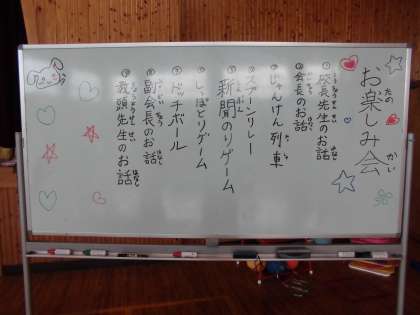 お楽しみ会
①校長先生のお話
②会長のお話
③じゃんけん列車
④スプーンリレー
⑤新聞のりゲーム
⑥しっぽとりゲーム
⑦ドッチボール
⑧副会長のお話
⑨教頭先生のお話